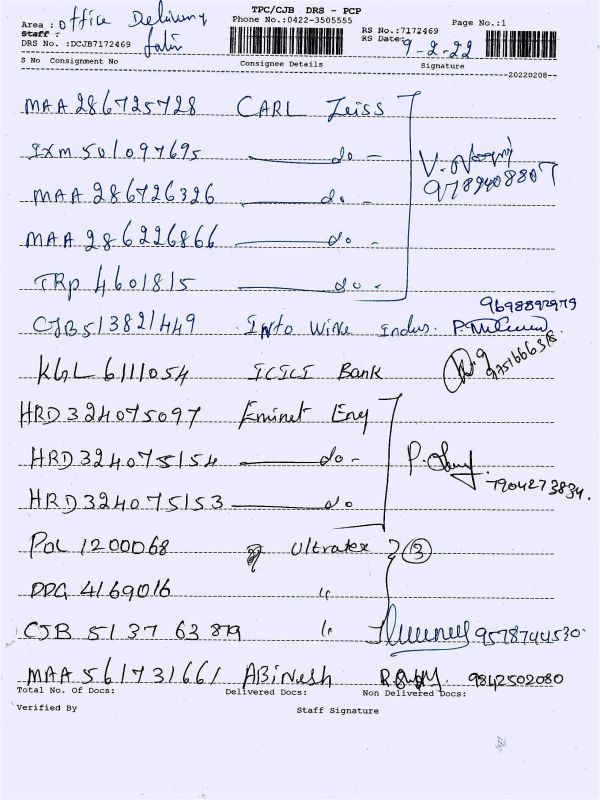 TPC/CJB DRS - PCP
Area : office Delivery Phone No.:0422-3505555 Page No.:1
Staff : RS No.:7172469
DRS No. :DCJB7172469 RS Date: 9-2-22
S No Consignment No Consignee Details Signature
20220208
MAA 286725728 CARL Zeiss
IXM 501097695 do -
MAA 286726326 do -
MAA 286226866 do -
TRP 4601815 do -
9789408807
CJB 513821449 Into Wire Indus. 9698892979
KGL 6111054 ICICI Bank
HRD 324075097 Eminet Eng
HRD 324075154 do -
HRD 324075153 do
7904273834.
POL 1200068 Ultratex 3
DDG 4169016 "
CJB 513763879 " 9578744530
MAA 561731661 ABiNesh 9842502080
Total No. Of Docs: Delivered Docs: Non Delivered Docs:
Verified By Staff Signature